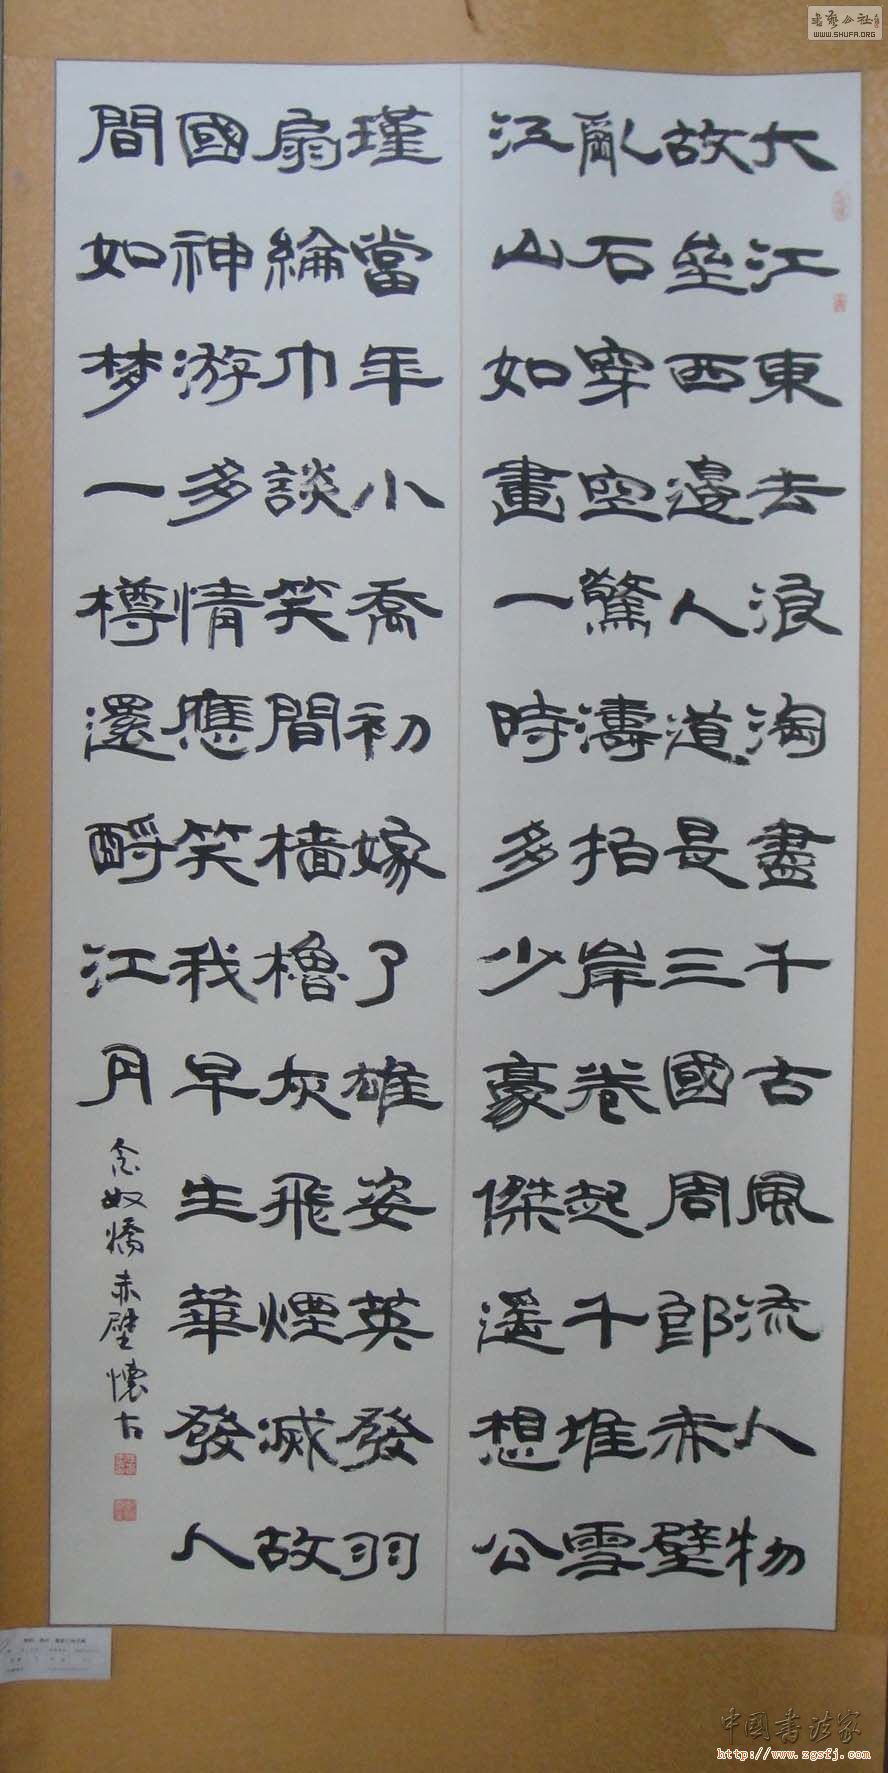 大江東去浪淘盡千古風流人物
故壘西邊人道是三國周郎赤壁
亂石穿空驚濤拍岸卷起千堆雪
江山如畫一時多少豪傑遥想公
瑾當年小喬初嫁了雄姿英發羽
扇綸巾談笑間檣櫓灰飛煙滅故
國神游多情應笑我早生華發人
間如梦一樽還酹江月
念奴嬌赤壁懷古
書藝公社
WWW.SHUFA.ORG
中国書法家
http://www.zgsfj.com